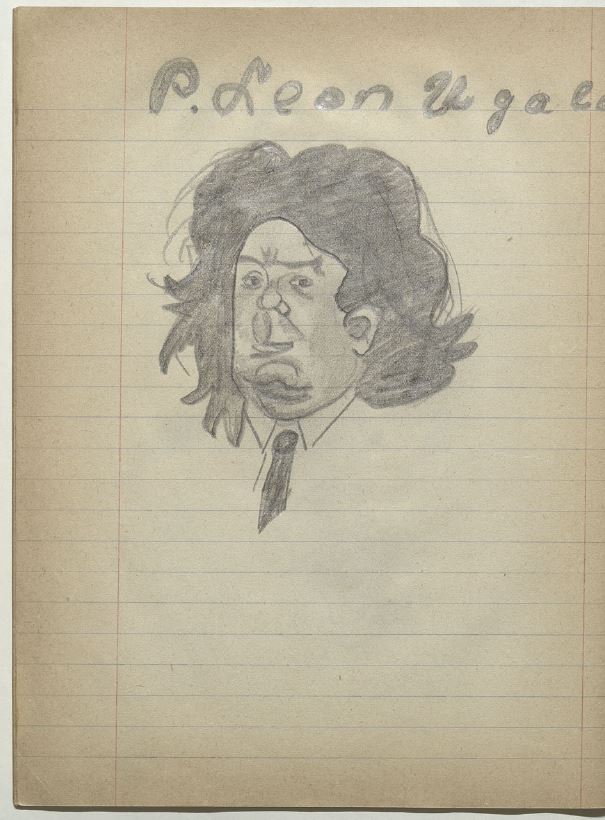 P. Leon Ugal